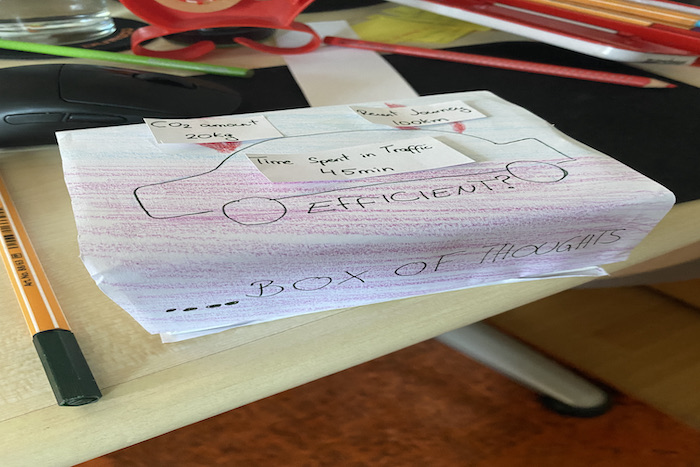 CO2 amount
20kg
Recent Journey
100km
Time Spent in Traffic
45min
EFFICIENT?
.... BOX OF THOUGHTS